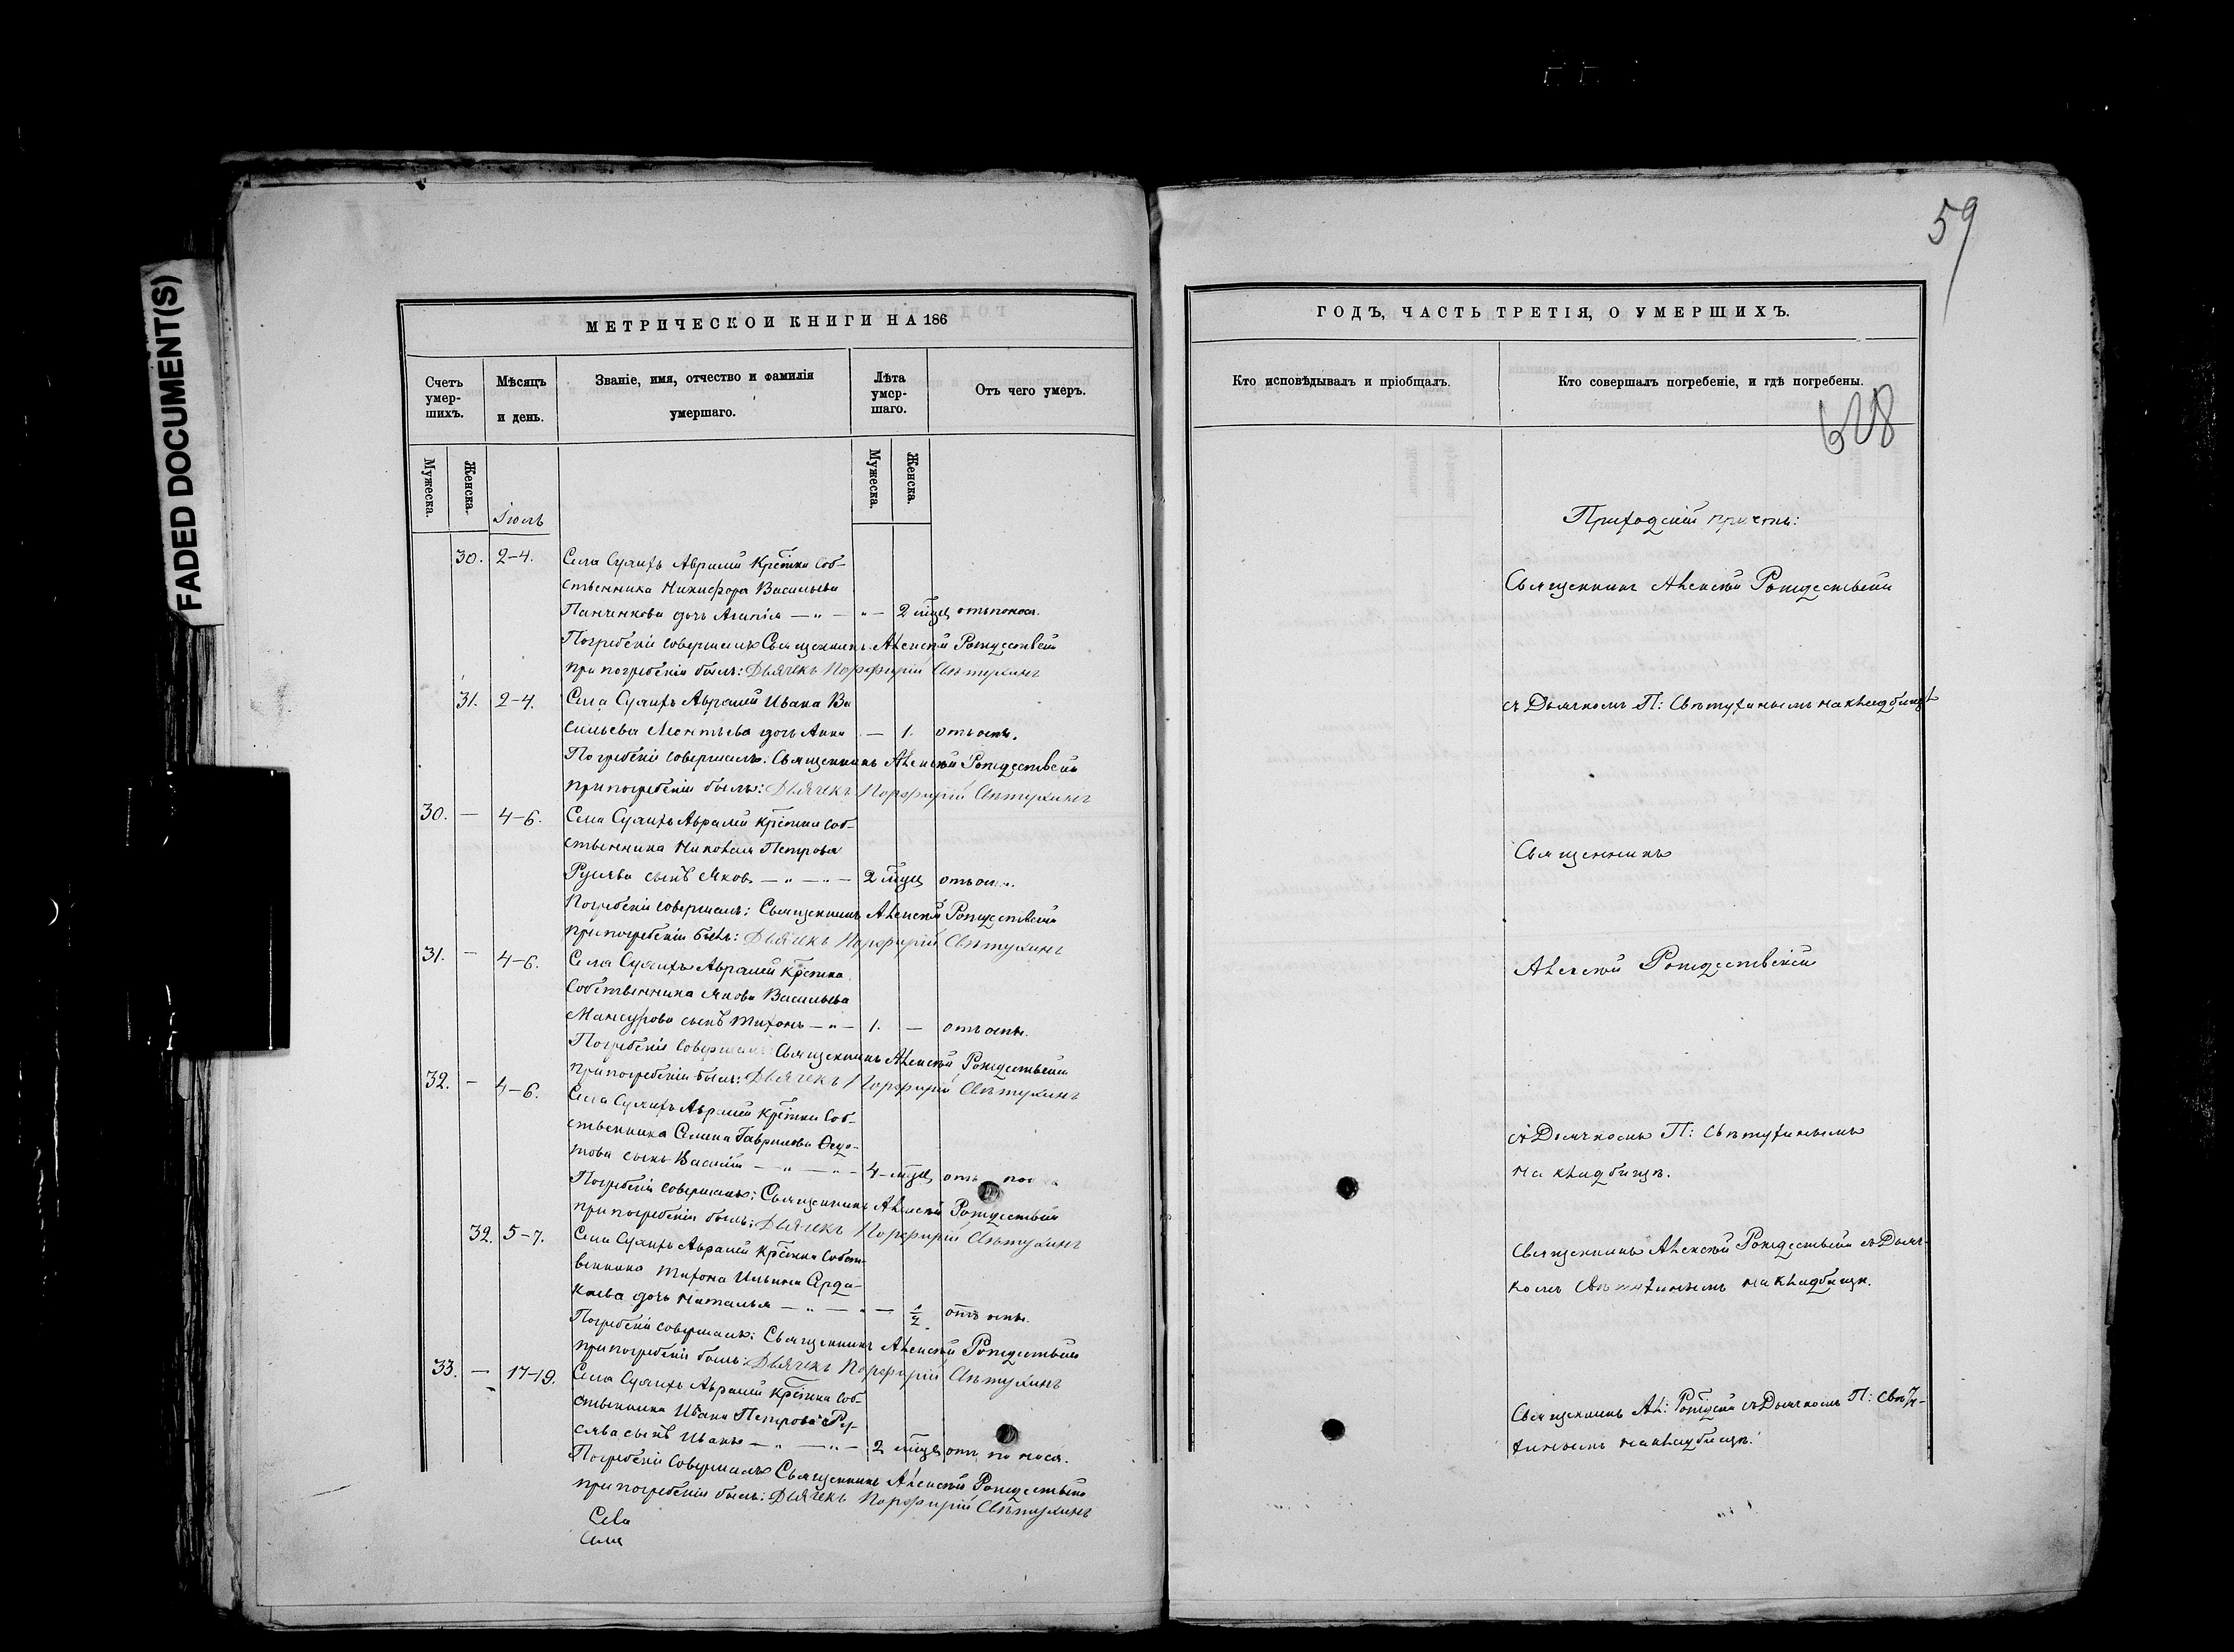 FADED DOCUMENT(S)
59
МЕТРИЧЕСКОЙ КНИГИ НА 186
Счетъ умер-шихъ.
Мѣсяцъ и день.
Званіе, имя, отчество и фамилія умершаго.
Лѣта умер-шаго.
Отъ чего умеръ.
Мужеска.
Женска.
Мужеска.
Женска.
Іюль
30. 2-4. Села Авралей Крестьян Соб-
ственника Никифора Васильева
дочь Агапія — " — " — 2 мѣсц отъ поноса.
Погребеніе совершалъ Священникъ Алексѣй Рождественскій
при погребеніи былъ: Дьячекъ Порфирій Свѣтухинъ
31. 2-4. Села Авралей Ивана Ва
сильева дочь Анна — 1. отъ оспы.
Погребеніе совершалъ: Священникъ Алексѣй Рождественскій
при погребеніи былъ: Дьячекъ Порфирій Свѣтухинъ
30. — 4-6. Села Авралей Крестьян Соб-
ственника Николая Петрова
сынъ Яковъ — " — " — 2 мѣсц
Погребеніе совершалъ: Священникъ Алексѣй Рождественскій
при погребеніи былъ: Дьячекъ Порфирій Свѣтухинъ
31. — 4-6. Села Авралей
Собственника Якова Васильева
Мансурова сынъ Тихонъ — " — 1. — отъ оспы.
Погребеніе совершалъ: Священникъ Алексѣй Рождественскій
при погребеніи былъ: Дьячекъ Порфирій Свѣтухинъ
32. — 4-6. Села Авралей Соб-
ственника Семена Гаврилова Ѳедо-
това сынъ Василій — " — " — 4 мѣсц отъ
Погребеніе совершалъ: Священникъ Алексѣй Рождественскій
при погребеніи былъ: Дьячекъ Порфирій Свѣтухинъ
32. 5-7. Села Авралей Собст-
венника Тихона Ильина
дочь Наталья — " — " — ½ отъ оспы.
Погребеніе совершалъ: Священникъ Алексѣй Рождественскій
при погребеніи былъ: Дьячекъ Порфирій Свѣтухинъ
33. — 17-19. Села Авралей Соб-
ственника Ивана Петрова
сынъ Иванъ — " — " — 2 мѣсц отъ поноса.
Погребеніе совершалъ Священникъ Алексѣй Рождественскій
при погребеніи былъ: Дьячекъ Порфирій Свѣтухинъ
Села
Села
ГОДЪ, ЧАСТЬ ТРЕТІЯ, О УМЕРШИХЪ.
Кто исповѣдывалъ и пріобщалъ.
Кто совершалъ погребеніе, и гдѣ погребены.
Приходскій причтъ:
Священникъ Алексѣй Рождественскій
съ Дьячкомъ П: Свѣтухинымъ на кладбищѣ
Священникъ
Алексѣй Рождественскій
съ Дьячкомъ П: Свѣтухинымъ
на кладбищѣ.
Священникъ Алексѣй Рождественскій съ Дьяч-
комъ Свѣтухинымъ на кладбищѣ.
Священникъ Ал: съ Дьячкомъ П: Свѣту-
хинымъ на кладбищѣ.